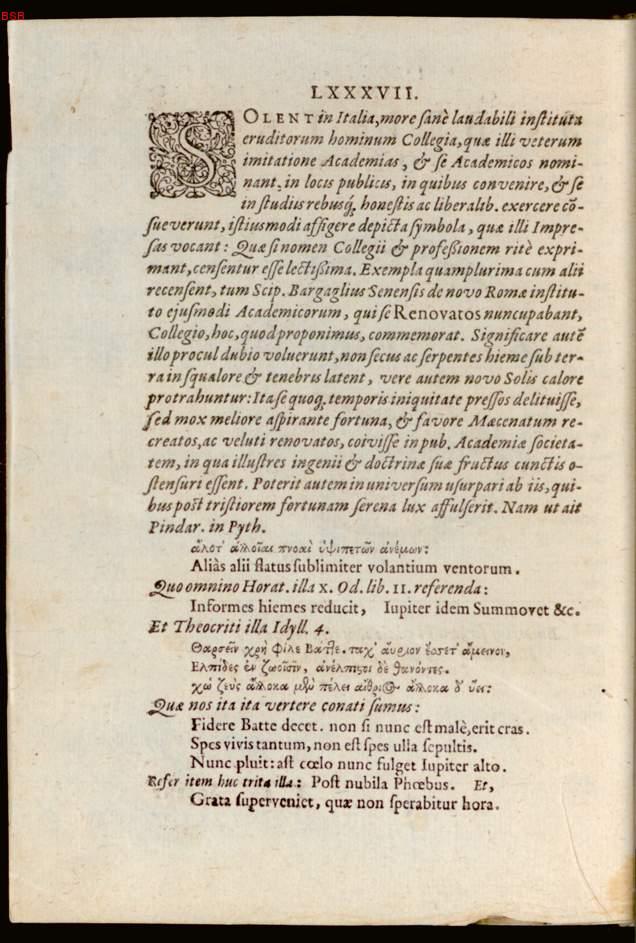 BSB
LXXXVII.
SOLENT in Italia, more sanè laudabili instituta
eruditorum hominum Collegia, quæ illi veterum
imitatione Academias, & se Academicos nomi-
nant, in locis publicis, in quibus convenire, & se
in studiis rebusq́; honestis ac liberalib. exercere cō-
sueverunt, istiusmodi affigere depicta symbola, quæ illi Impre-
sas vocant: Quæ si nomen Collegii & professionem ritè expri-
mant, censentur esse lectissima. Exempla quamplurima cum alii
recensent, tum Scip. Bargaglius Senensis de novo Romæ institu-
to ejusmodi Academicorum, qui se Renovatos nuncupabant,
Collegio, hoc, quod proponimus, commemorat. Significare autē
illo procul dubio voluerunt, non secus ac serpentes hieme sub ter-
ra in squalore & tenebris latent, vere autem novo Solis calore
protrahuntur: Ita se quoq; temporis iniquitate pressos delituisse,
sed mox meliore aspirante fortuna, & favore Mæcenatum re-
creatos, ac veluti renovatos, coivisse in pub. Academiæ societa-
tem, in qua illustres ingenii & doctrinæ suæ fructus cunctis o-
stensuri essent. Poterit autem in universum usurpari ab iis, qui-
bus post tristiorem fortunam serena lux affulserit. Nam ut ait
Pindar. in Pyth.
ἄλλοτ' ἀλλοῖαι πνοαὶ ὑψιπετῶν ἀνέμων:
Aliàs alii flatus sublimiter volantium ventorum.
Quo omnino Horat. illa x. Od. lib. II. referenda:
Informes hiemes reducit, Iupiter idem Summovet &c.
Et Theocriti illa Idyll. 4.
Θαρσεῖν χρὴ φίλε Βάττε. ταχ' αὔριον ἔσσετ' ἄμεινον,
Ελπίδες ἐν ζωοῖσιν, ἀνέλπιστοι δὲ θανόντες.
χὡ ζεὺς ἄλλοκα μὲν πέλει αἴθριος ἄλλοκα δ' ὕει:
Quæ nos ita ita vertere conati sumus:
Fidere Batte decet. non si nunc est malè, erit cras.
Spes vivis tantum, non est spes ulla sepultis.
Nunc pluit: ast cœlo nunc fulget Iupiter alto.
Refer item huc trita illa: Post nubila Phœbus. Et,
Grata superveniet, quæ non sperabitur hora.